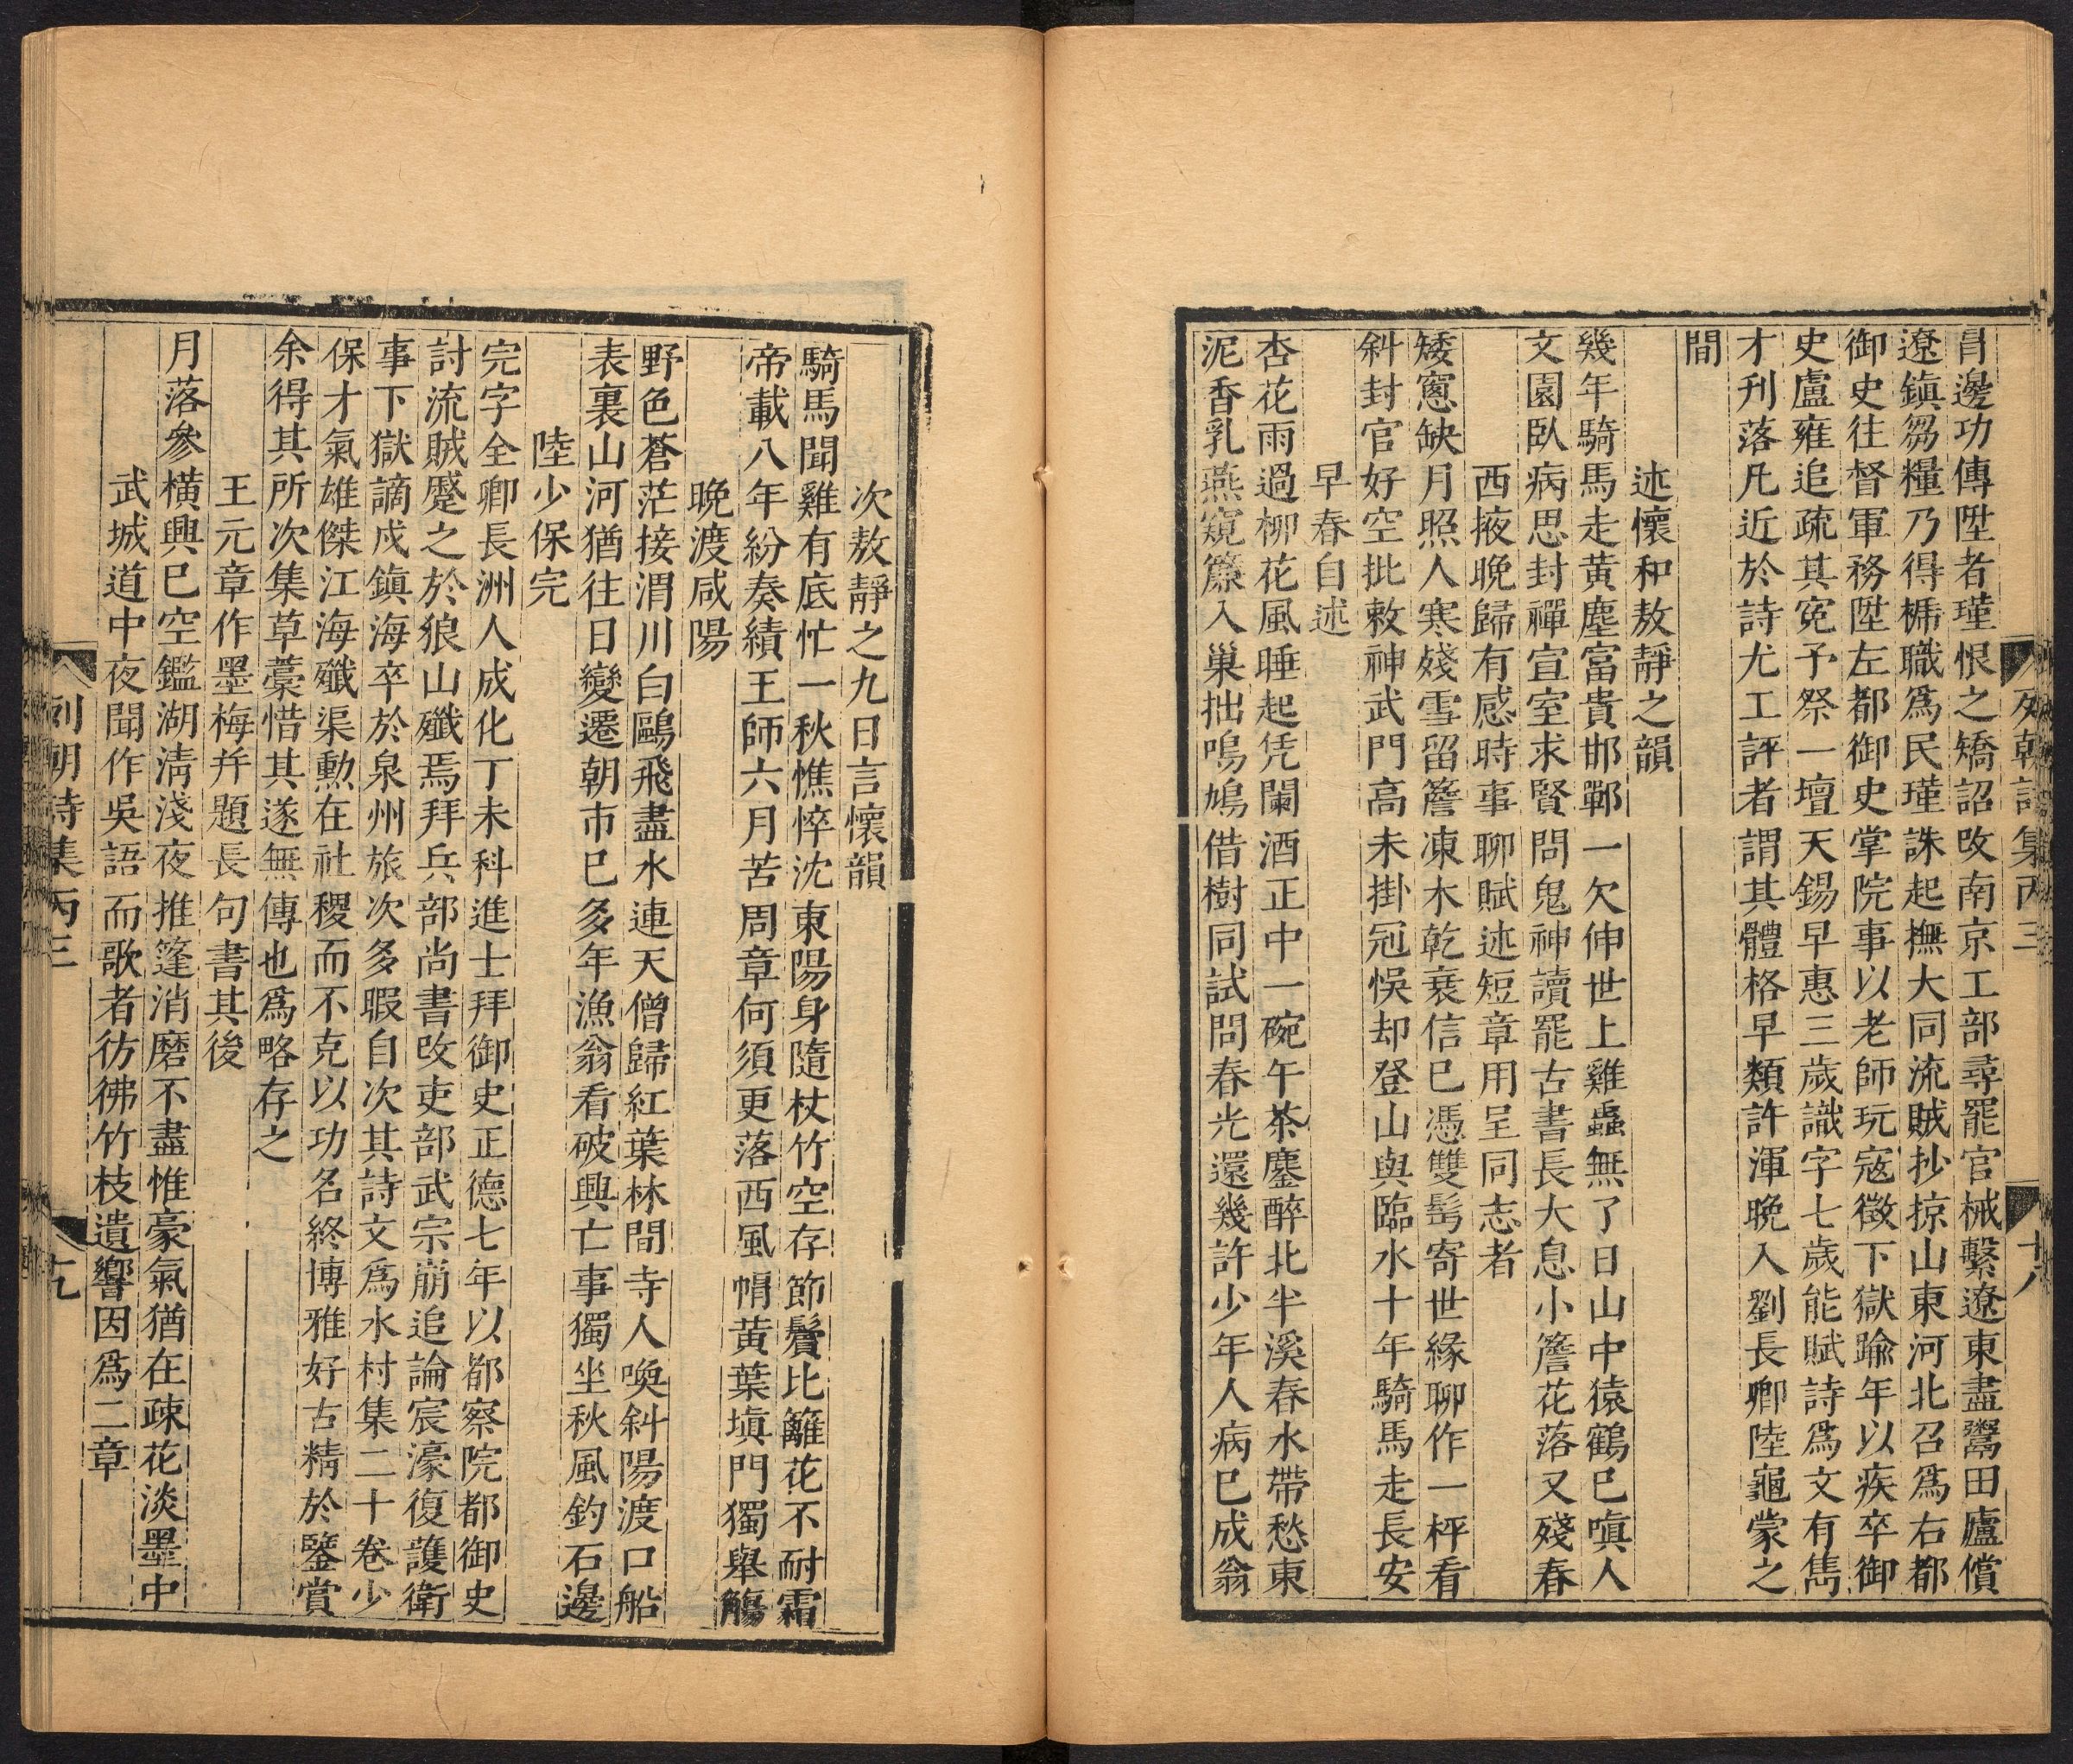 冒邊功傳陞者瑾恨之矯詔改南京工部尋罷官械繫遼東盡鬻田廬償
遼鎮芻糧乃得褫職為民瑾誅起撫大同流賊抄掠山東河北召為右都
御史往督軍務陞左都御史掌院事以老師玩寇徵下獄踰年以疾卒御
史盧雍追疏其冤予祭一壇天錫早惠三歲識字七歲能賦詩為文有雋
才刊落凡近於詩尤工評者謂其體格早類許渾晚入劉長卿陸龜蒙之
間
述懷和敖靜之韻
幾年騎馬走黃塵富貴邯鄲一欠伸世上雞蟲無了日山中猿鶴巳嗔人
文園臥病思封禪宣室求賢問鬼神讀罷古書長大息小簷花落又殘春
西掖晚歸有感時事聊賦述短章用呈同志者
矮窻缺月照人寒殘雪留簷凍木乾衰信巳憑雙髩寄世緣聊作一枰看
斜封官好空批敕神武門高未掛冠悞却登山與臨水十年騎馬走長安
早春自述
杏花雨過柳花風睡起凭闌酒正中一碗午茶鏖醉北半溪春水帶愁東
泥香乳燕窺簾入巢拙鳴鳩借樹同試問春光還幾許少年人病巳成翁
列朝詩集丙三
十八
次敖靜之九日言懷韻
騎馬聞雞有底忙一秋憔悴沈東陽身隨杖竹空存節鬢比籬花不耐霜
帝載八年紛奏績王師六月苦周章何須更落西風帽黃葉塡門獨舉觴
晚渡咸陽
野色蒼茫接渭川白鷗飛盡水連天僧歸紅葉林間寺人喚斜陽渡口船
表裏山河猶往日變遷朝市巳多年漁翁看破興亡事獨坐秋風釣石邊
陸少保完
完字全卿長洲人成化丁未科進士拜御史正德七年以都察院都御史
討流賊蹙之於狼山殲焉拜兵部尚書改吏部武宗崩追論宸濠復護衛
事下獄謫戍鎮海卒於泉州旅次多暇自次其詩文為水村集二十卷少
保才氣雄傑江海殲渠勳在社稷而不克以功名終博雅好古精於鑒賞
余得其所次集草藁惜其遂無傳也為略存之
王元章作墨梅幷題長句書其後
月落參橫興巳空鑑湖淸淺夜推篷消磨不盡惟豪氣猶在疎花淡墨中
武城道中夜聞作吳語而歌者彷彿竹枝遺響因為二章
列朝詩集丙三
十九